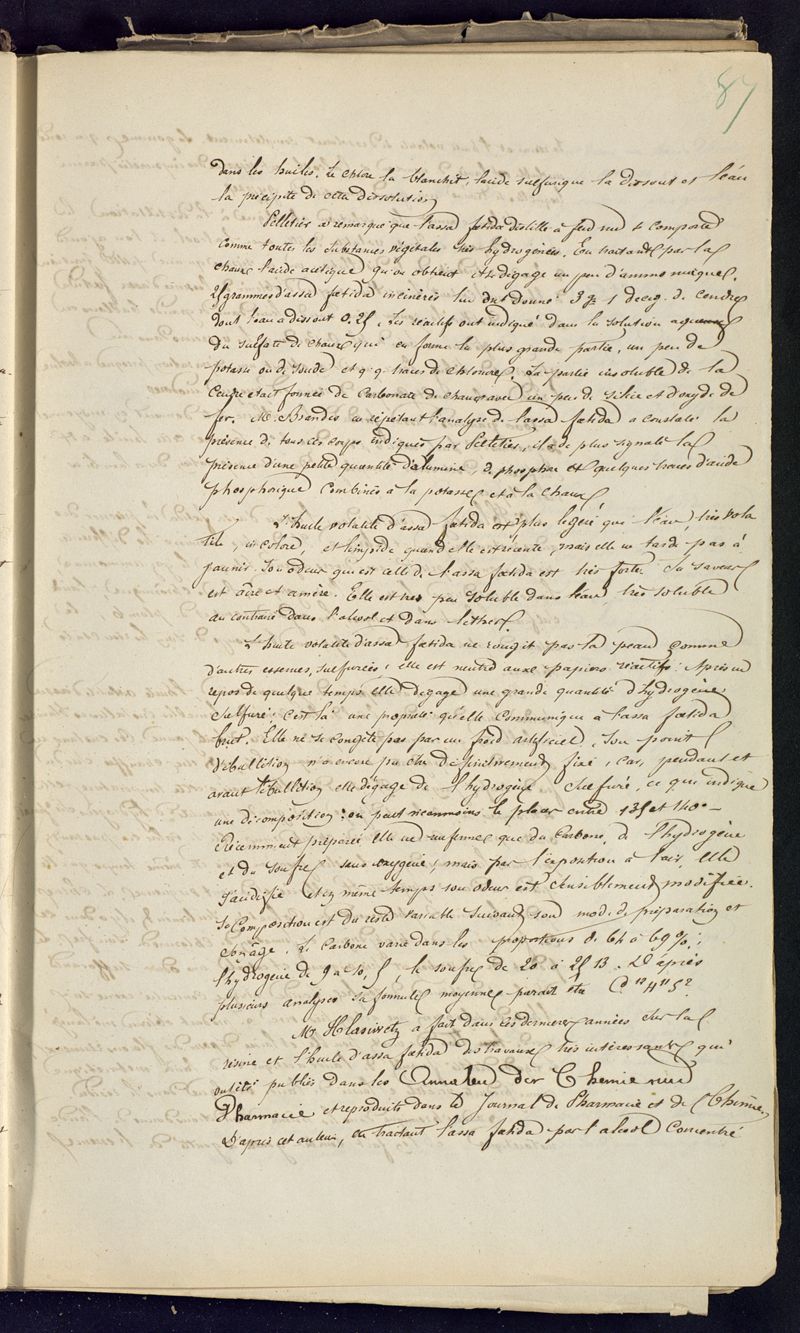 87
dans les huiles. Le chlore la blanchit, l'acide sulfurique la dissout et l'eau
la précipite de cette dissolution
Pelletier a remarqué que l'assa fœtida distillé à feu nud se comporte
comme toutes les substances végétales très hydrogénées. En traitant par la
chaux l'acide acétique qu'on obtient il se dégage un peu d'ammoniaque.
25 grammes d'assa fœtida incinérés lui ont donné 3 g 1 decig. de cendres
dont l'eau a dissout 0.25. Les réactifs ont indiqué dans la solution aqueuse
du sulfate de chaux qui en forme la plus grande partie, un peu de
potasse ou de soude et q.q. traces de chlorures. La partie insoluble de la
cendre était formée de Carbonate de chaux avec un peu de silice et d'oxyde de
fer. Mr. Brandes en répétant l'analyse de l'assa fœtida a constaté la
présence de tous ces corps indiqués par Pelletier, il a de plus signalé la
présence d'une petite quantité d'alumine, de phosphore et quelques traces d'acide
phosphorique combinés à la potasse et à la chaux.
L'huile volatile d'assa fœtida est plus légère que l'eau, très vola
tile, incolore, et limpide quand elle est récente, mais elle ne tarde pas à
jaunir. Son odeur qui est celle de l'assa fœtida est très forte. Sa saveur
est âcre et amère. Elle est très peu soluble dans l'eau, très soluble
au contraire dans l'alcool et dans l'éther.
L'huile volatile d'assa fœtida ne rougit pas la peau comme
d'autres essences sulfurées; elle est neutre aux papiers réactifs. Après un
repos de quelque temps elle dégage une grande quantité d'hydrogène
sulfuré; c'est là une propriété qu'elle communique à l'assa fœtida
brut. Elle ne se congèle pas par un froid artificiel, Son point
d'ébullition n'a encore pu être définitivement fixé, car, pendant et
avant l'ébullition elle dégage de l'hydrogène sulfuré, ce qui indique
une décomposition: on peut néanmoins le placer entre 135 et 140°–
Récemment préparée elle ne renferme que du carbone, de l'hydrogène
et du soufre sans oxygène; mais par l'exposition à l'air, elle
s'acidifie et en même temps son odeur est sensiblement modifiée.
Sa Composition est du reste variable suivant son mode de préparation et
son âge. Le carbone varie dans les proportions de 64 à 69%;
l'hydrogène de 9 à 10,5, le soufre de 20 à 25 13. D'après
plusieurs analyses sa formule moyenne paraît être C¹² H¹¹ S²
Mr Hlasiwetz a fait dans ces dernières années sur la
résine et l'huile d'assa fœtida des travaux très intéressants qui
ont été publiés dans les Annalen der Chemie und
Pharmacie et reproduits dans le Journal de Pharmacie et de Chimie,
D'après cet auteur, en traitant l'assa fœtida par l'alcool concentré